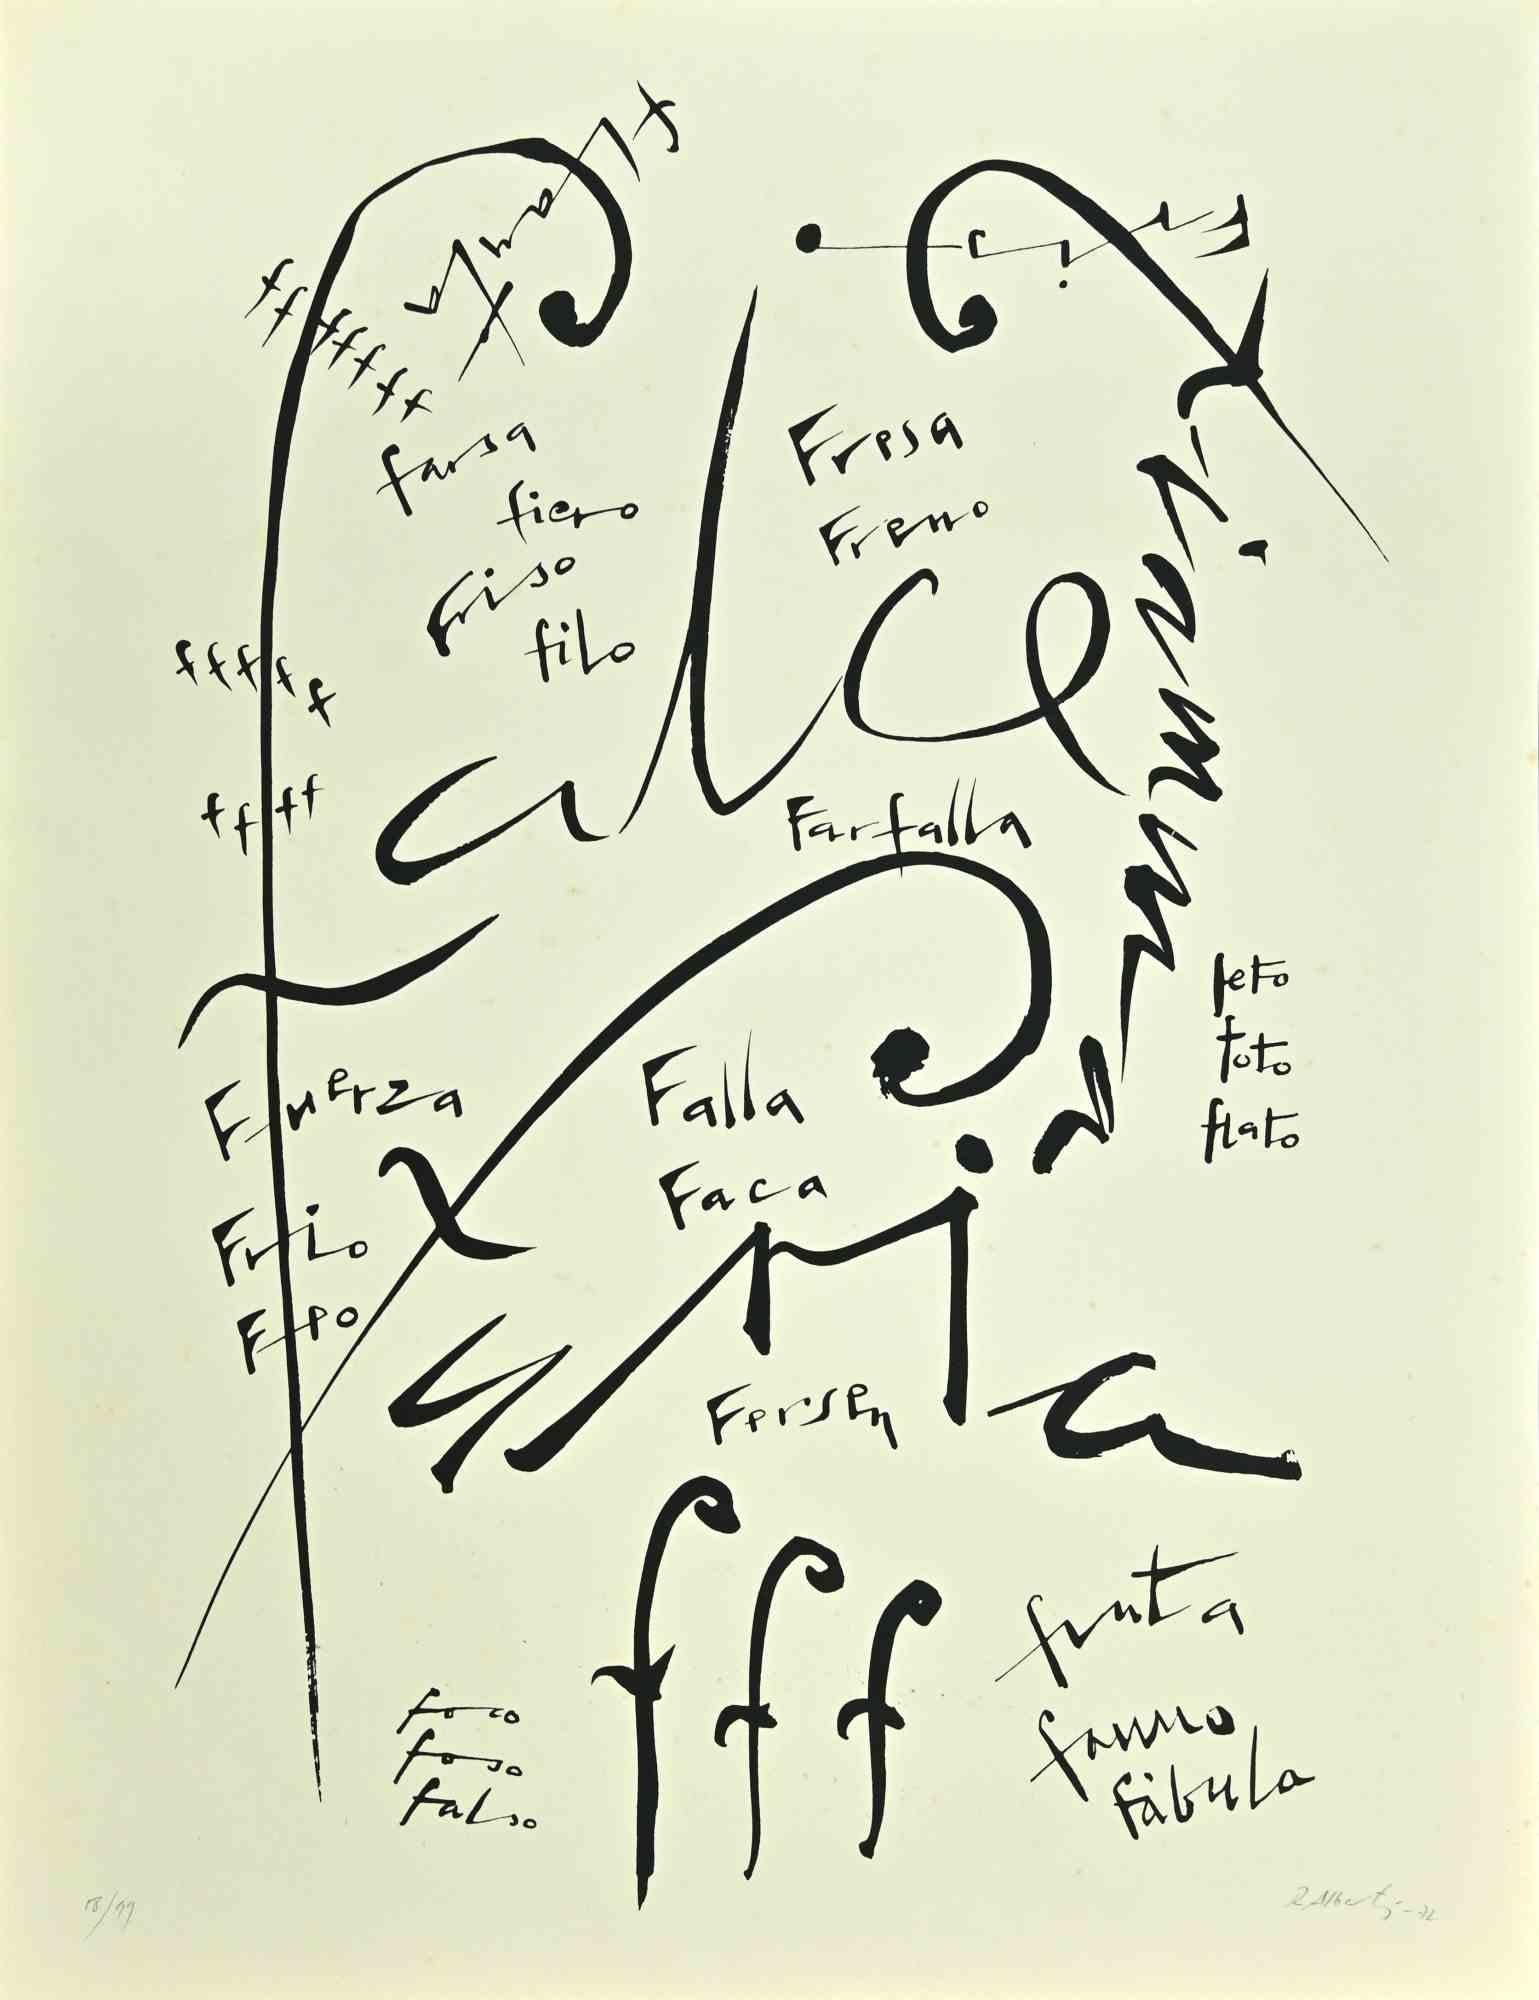 ff fffff
farsa
fiero
Friso
filo
Fresa
Freno
fffff
ffff
falce
Farfalla
Fuerza
Frio
Feo
Falla
Faca
furia
Fersen
feto
foto
flato
fff
foco
foso
falso
fruta
fauno
fábula
18/99
R. Alberti-72